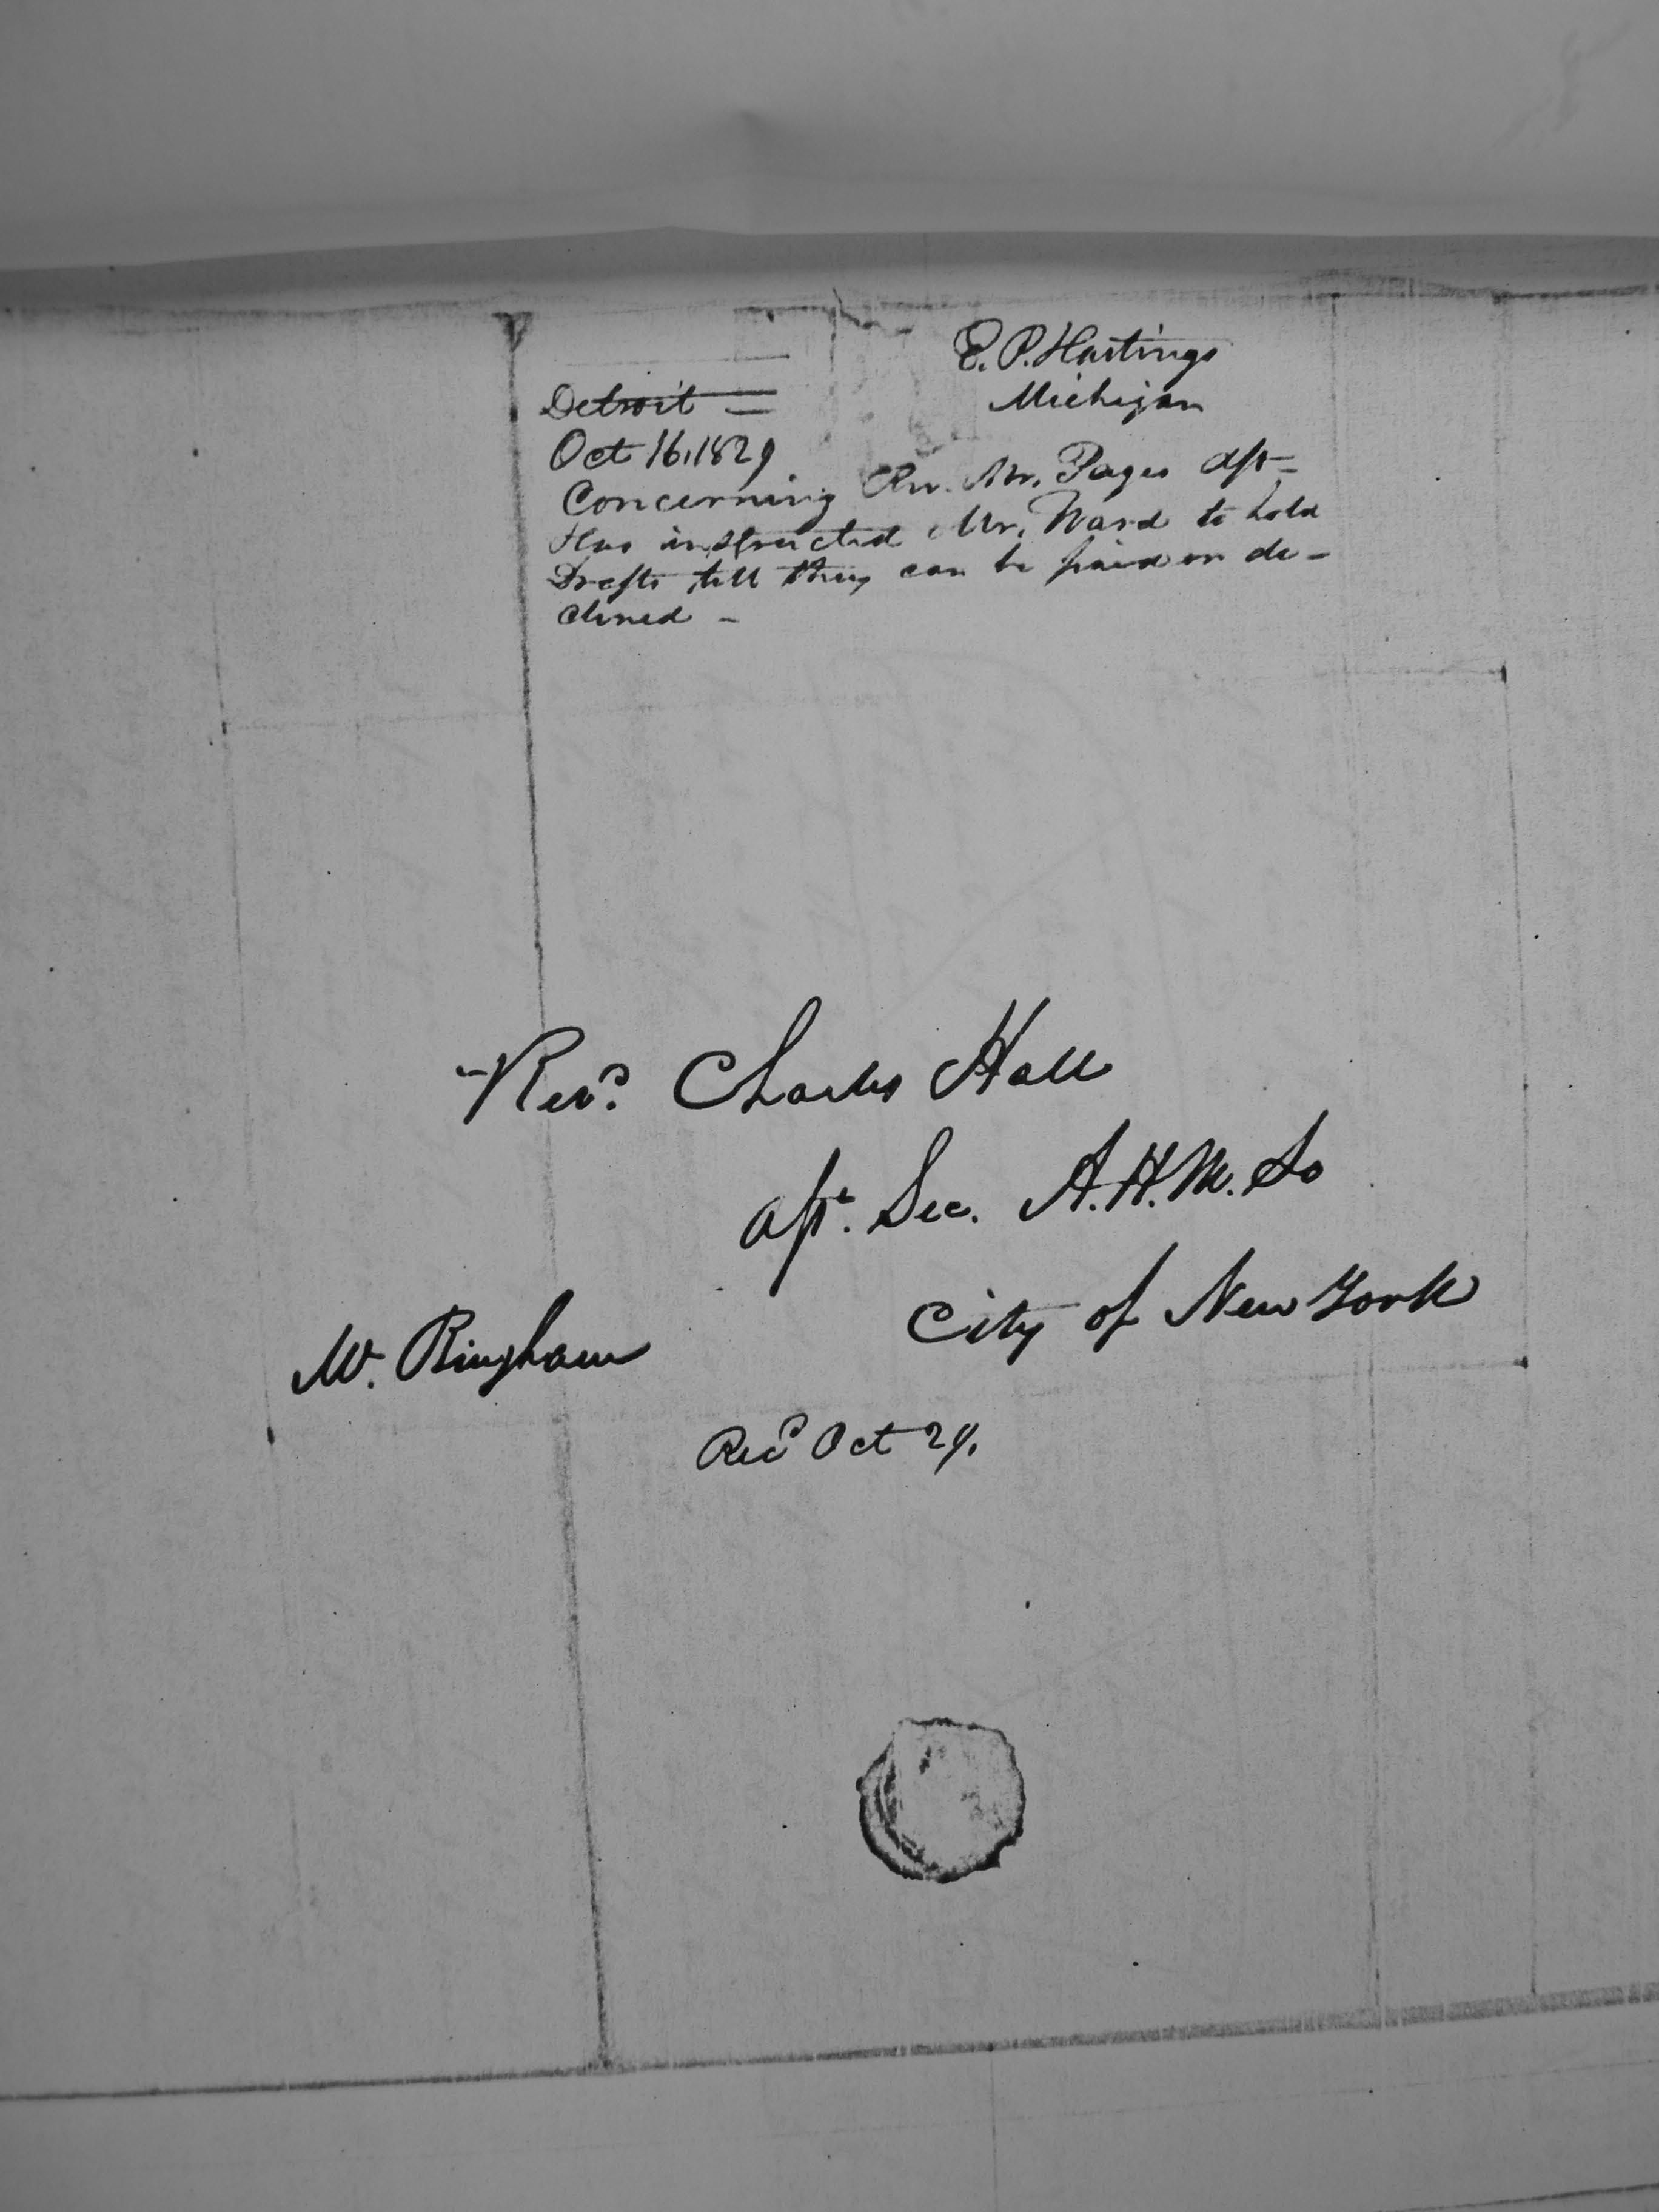 E. P. Hastings
Michigan
Detroit =
Oct 16, 1829
Concerning Rev. Mr. Pages apt=
Has instructed Mr. Ward to hold
Drafts till they can be paid or de-
clined -
Revd. Charles Hall
ast. Sec. A.H.M. So
City of New York
W. Bingham
Recd Oct 29.